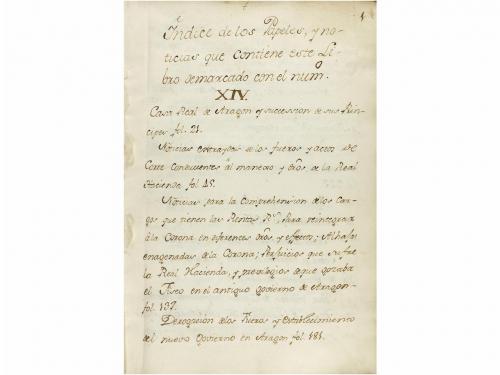 1
Índice de los Papeles, y no-
ticias que contiene este Li-
bro demarcado con el num.o
XIV.
Casa Real de Aragon y succession de sus Prin-
cipes fol. 21.
Noticias extraydas de los fueros y actos de
Corte Conducentes al manexo y dros. de la Real
Hacienda fol. 45.
Noticias para la comprehension de los Car-
gos que tienen las Rentas R.s, para reintegrar
a la Corona en diferentes dros. y effectos; Alhajas
enagenadas de la Corona; Perjuicios que sufre
la Real Hacienda, y previlegios de que gozaba
el Fisco en el antiguo govierno de Aragon
fol. 137.
Derogacion de los Fueros y establecimiento
del nuevo Govierno en Aragon fol. 181.